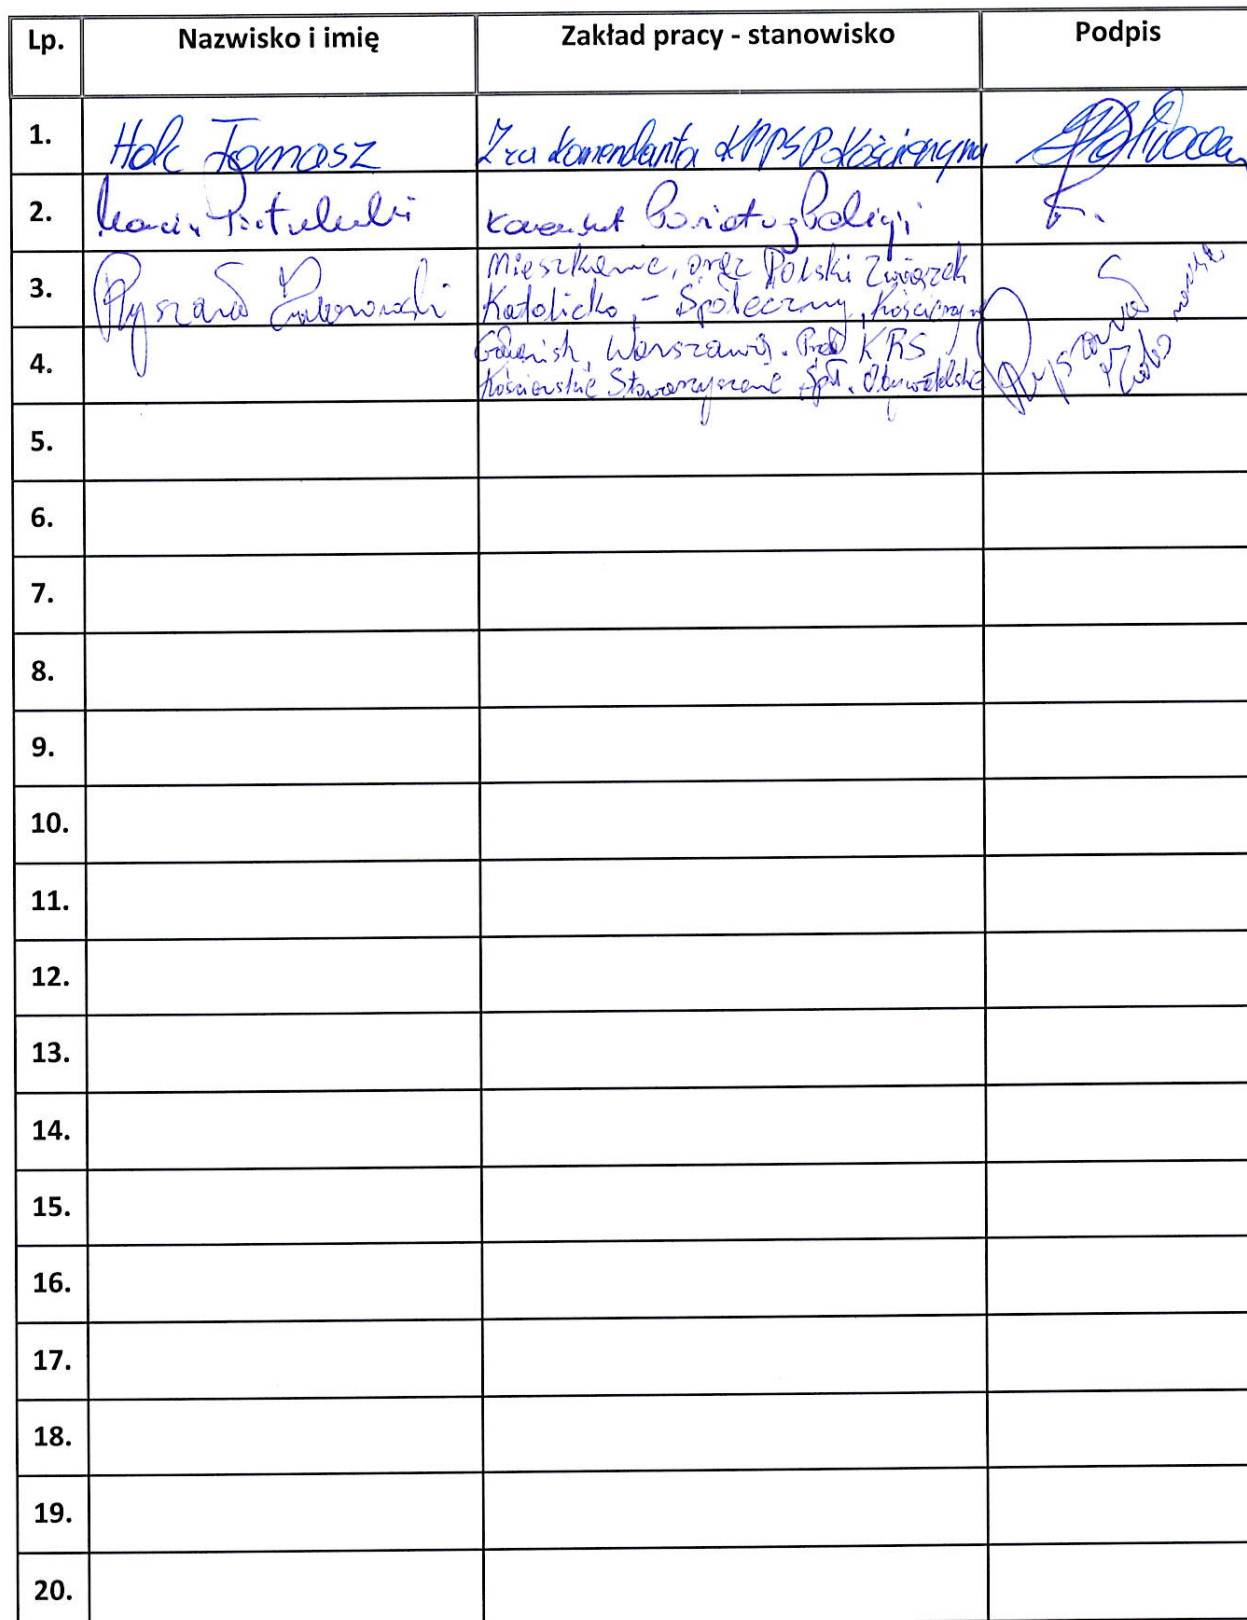 Lp. Nazwisko i imię Zakład pracy - stanowisko Podpis
1. Hok Tomasz Z-ca Komendanta KP PSP Kościerzyna
2. Marcin Powiatu Policji
3. Ryszard Mieszkaniec, oraz Polski Związek
Katolicko - Społeczny, Kościerzyna
4. Gdańsk, Warszawa. KRS
Kościerskie Stowarzyszenie Ryszard
5.
6.
7.
8.
9.
10.
11.
12.
13.
14.
15.
16.
17.
18.
19.
20.